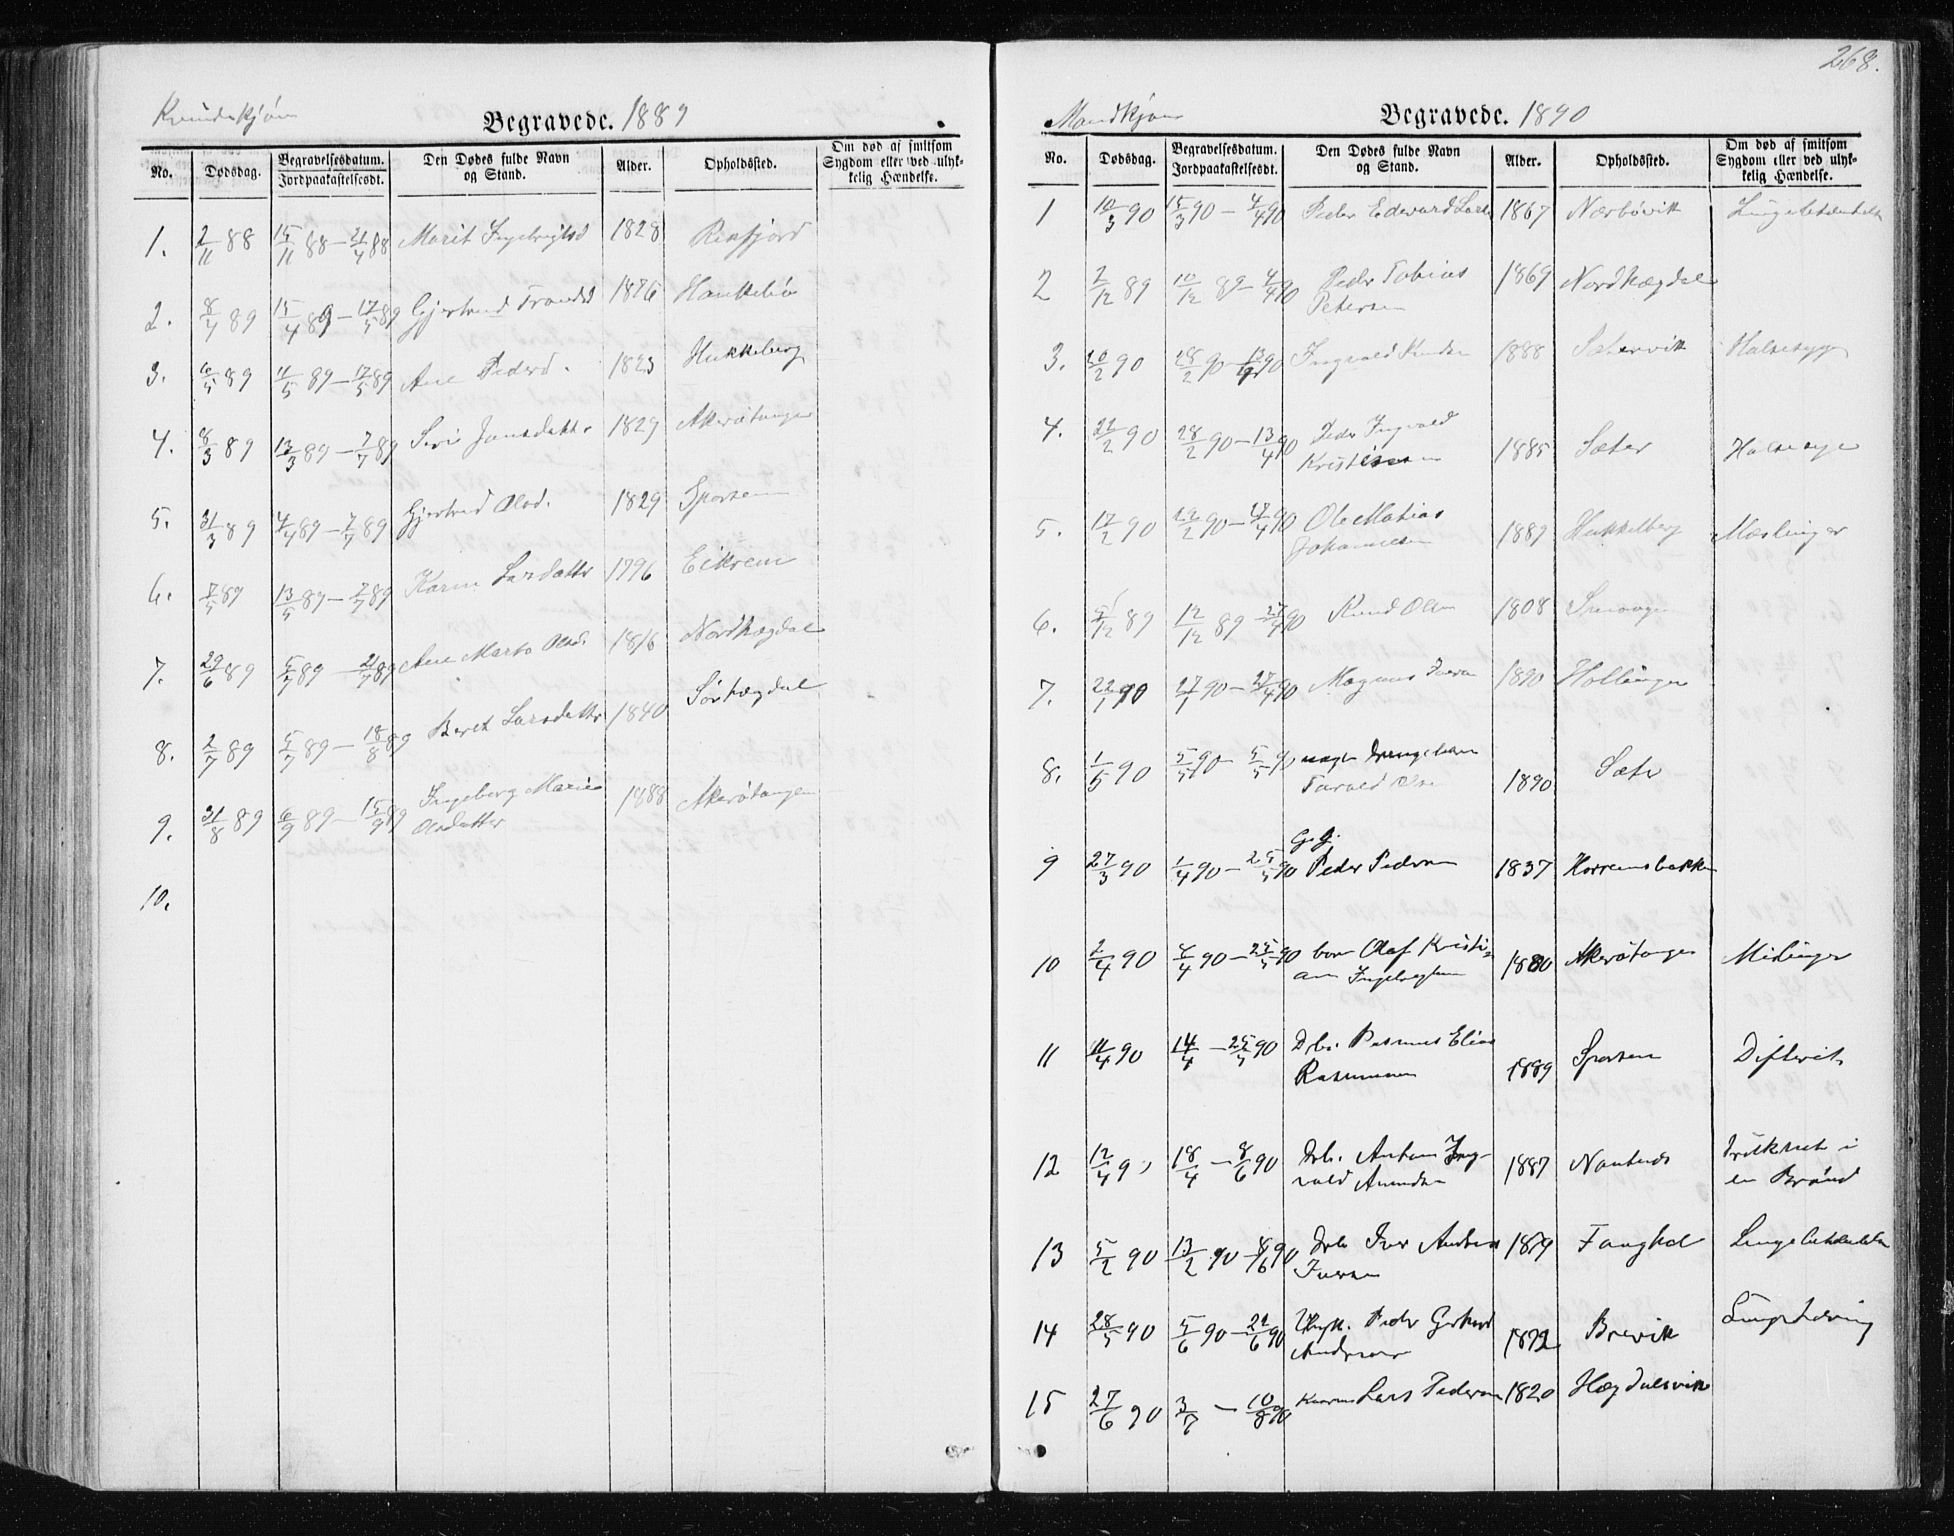 268.
Kvindekjøn
Begravede. 1889
No. Dødsdag. Begravelsesdatum. Jordpaakastelsesdt. Den Dødes fulde Navn og Stand. Alder. Opholdssted. Om død af smitsom Sygdom eller ved ulykkelig Hændelse.
1. 2/11 88 15/11 88 - 21/4 88 Marit Ingebrigtsd 1828 Rensfjord
2. 8/4 89 15/4 89 - 17/5 89 Gjertrud Trondsd 1826
3. 89 11/5 89 - 17/5 89 Ane Pedersd. 1823 Hukkelberg
4. 8/3 89 13/3 89 - 7/7 89 Siri Jonsdatter 1829 Akerøtangen
5. 31/3 89 4/4 89 - 7/7 89 Gjertrud Olsd. 1829 Sporsem
6. 7/5 89 13/5 89 - 7/7 89 Karen Larsdatter 1796 Eikrem
7. 29/6 89 5/7 89 - 21/7 89 Ane Marta Olsd. 1816 Nordhægdal
8. 2/7 89 5/7 89 - 18/8 89 Beret Larsdatter 1840 Sørhægdal
9. 31/8 89 6/9 89 - 15/9 89 Ingeborg Marie
Olsdatter 1888 Akerøtangen
10.
Mandkjøn
Begravede. 1890
No. Dødsdag. Begravelsesdatum. Jordpaakastelsesdt. Den Dødes fulde Navn og Stand. Alder. Opholdssted. Om død af smitsom Sygdom eller ved ulykkelig Hændelse.
1 10/3 90 15/3 90 - 4/4 90 Peder Edevard 1867 Nerbøvik Lungebetændelse
2 2/12 89 10/12 89 - 4/4 90 Peder Tobias
Petersen 1869 Nordhægdal
3. 20/2 90 28/2 90 - 13/4 90 Ingvald Knudsen 1888 Sætervik Halsesyge
4. 22/2 90 28/2 90 - 13/4 90 Peder Ingvald
Kristensen 1885 Sæter Halsesyge
5. 17/2 90 22/2 90 - 27/4 90 Ole Matias
Johannesen 1889 Hukkelberg Mæslinger
6. 5/12 89 12/12 89 - 27/4 90 Knud Olsen 1808
7. 90 90 - 27/4 90 Magnus Iversen 1890 Hollingen
8. 1/5 90 5/5 90 - 5/5 90
Torvald 1890 Sæter
9 27/3 90 1/4 90 - 25/5 90 Peder Pedersen 1837 Horremsbakken
10 2/4 90 8/4 90 - 25/5 90 barn Olaf Kristi-
an Ingebregtsen 1880 Akerøtangen Mislinger
11 11/4 90 14/4 - 25/5 90 Drb. Rasmus Elias
Rasmussen 1889 Sporsem Difterit
12 12/4 90 18/4 - 8/6 90 Drb. Anton Ing-
vald Amundsen 1887 Drukket i
en Brønd
13 5/2 90 13/2 90 - 8/6 90 Drb Iver Andreas
Iversen 1879 Fanghol Lungebetændelse
14 28/5 90 5/6 90 - 22/6 90 Ungk. Peder Gerhard
Andersen 1872 Brevik Lungetæring
15 27/6 90 3/7 - 10/8 90 Lars Pedersen 1820 Hægdalsvik